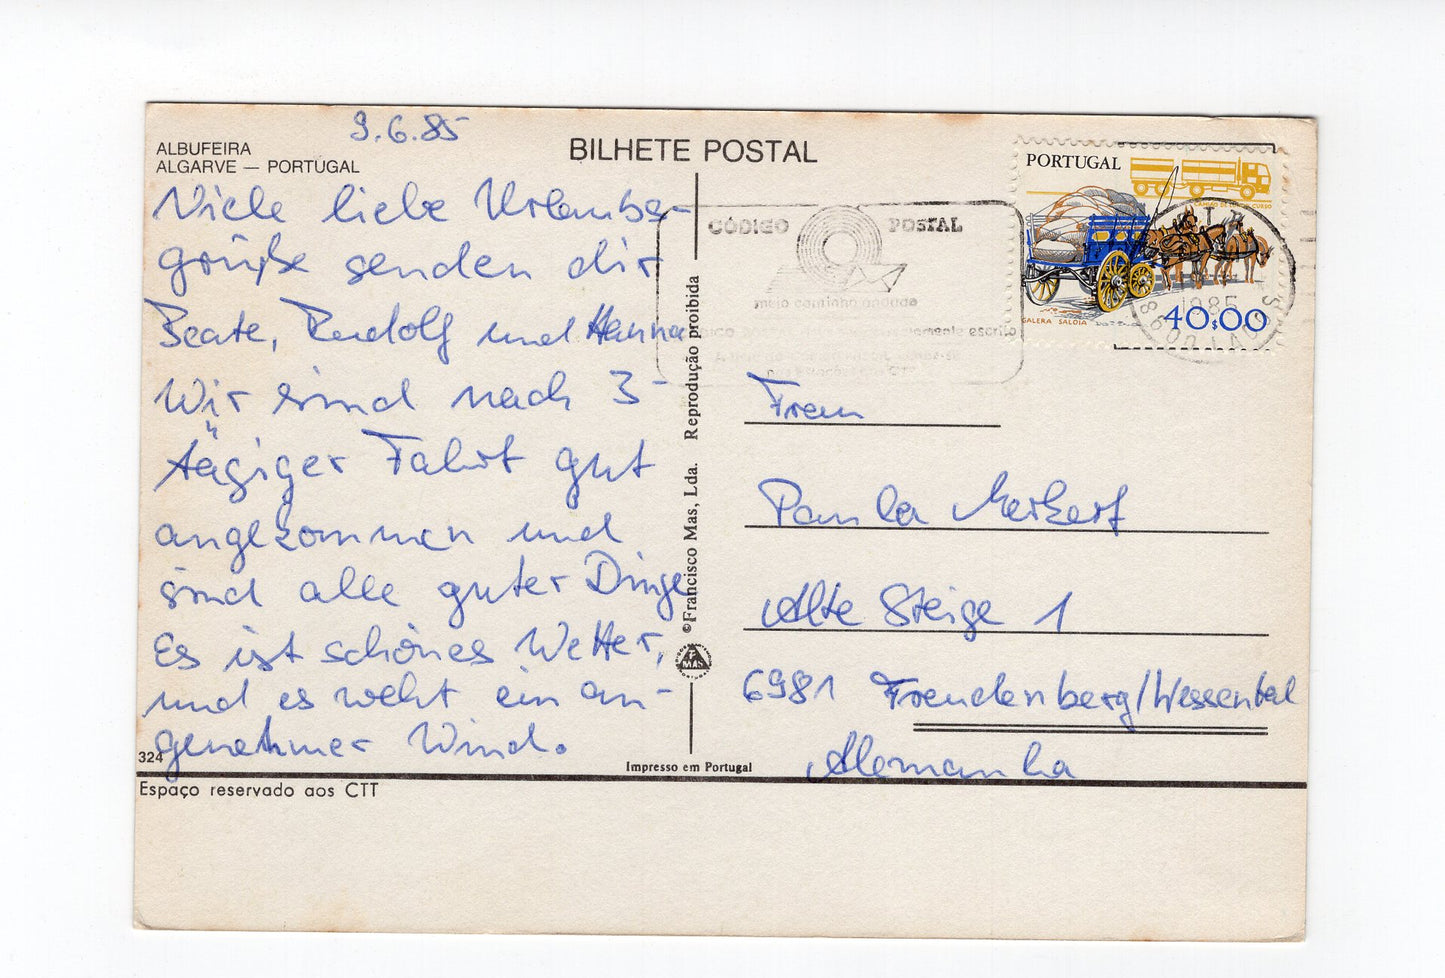 9.6.85
ALBUFEIRA
ALGARVE — PORTUGAL
BILHETE POSTAL
Viele liebe Urlaubs-
grüße senden dir
Beate, Rudolf und Hanna
Wir sind nach 3-
tägiger Fahrt gut
angekommen und
sind alle guter Dinge
Es ist schönes Wetter,
und es weht ein an-
genehmer Wind.
324
Espaço reservado aos CTT
©Francisco Mas, Lda. Reprodução proibida
F
MAS
Impresso em Portugal
CÓDIGO POSTAL
meio caminho andado
PORTUGAL
GALERA SALOIA
40$00
1985
Frau
Paula
Alte Steige 1
6981 Freudenberg/Wessental
Alemanha